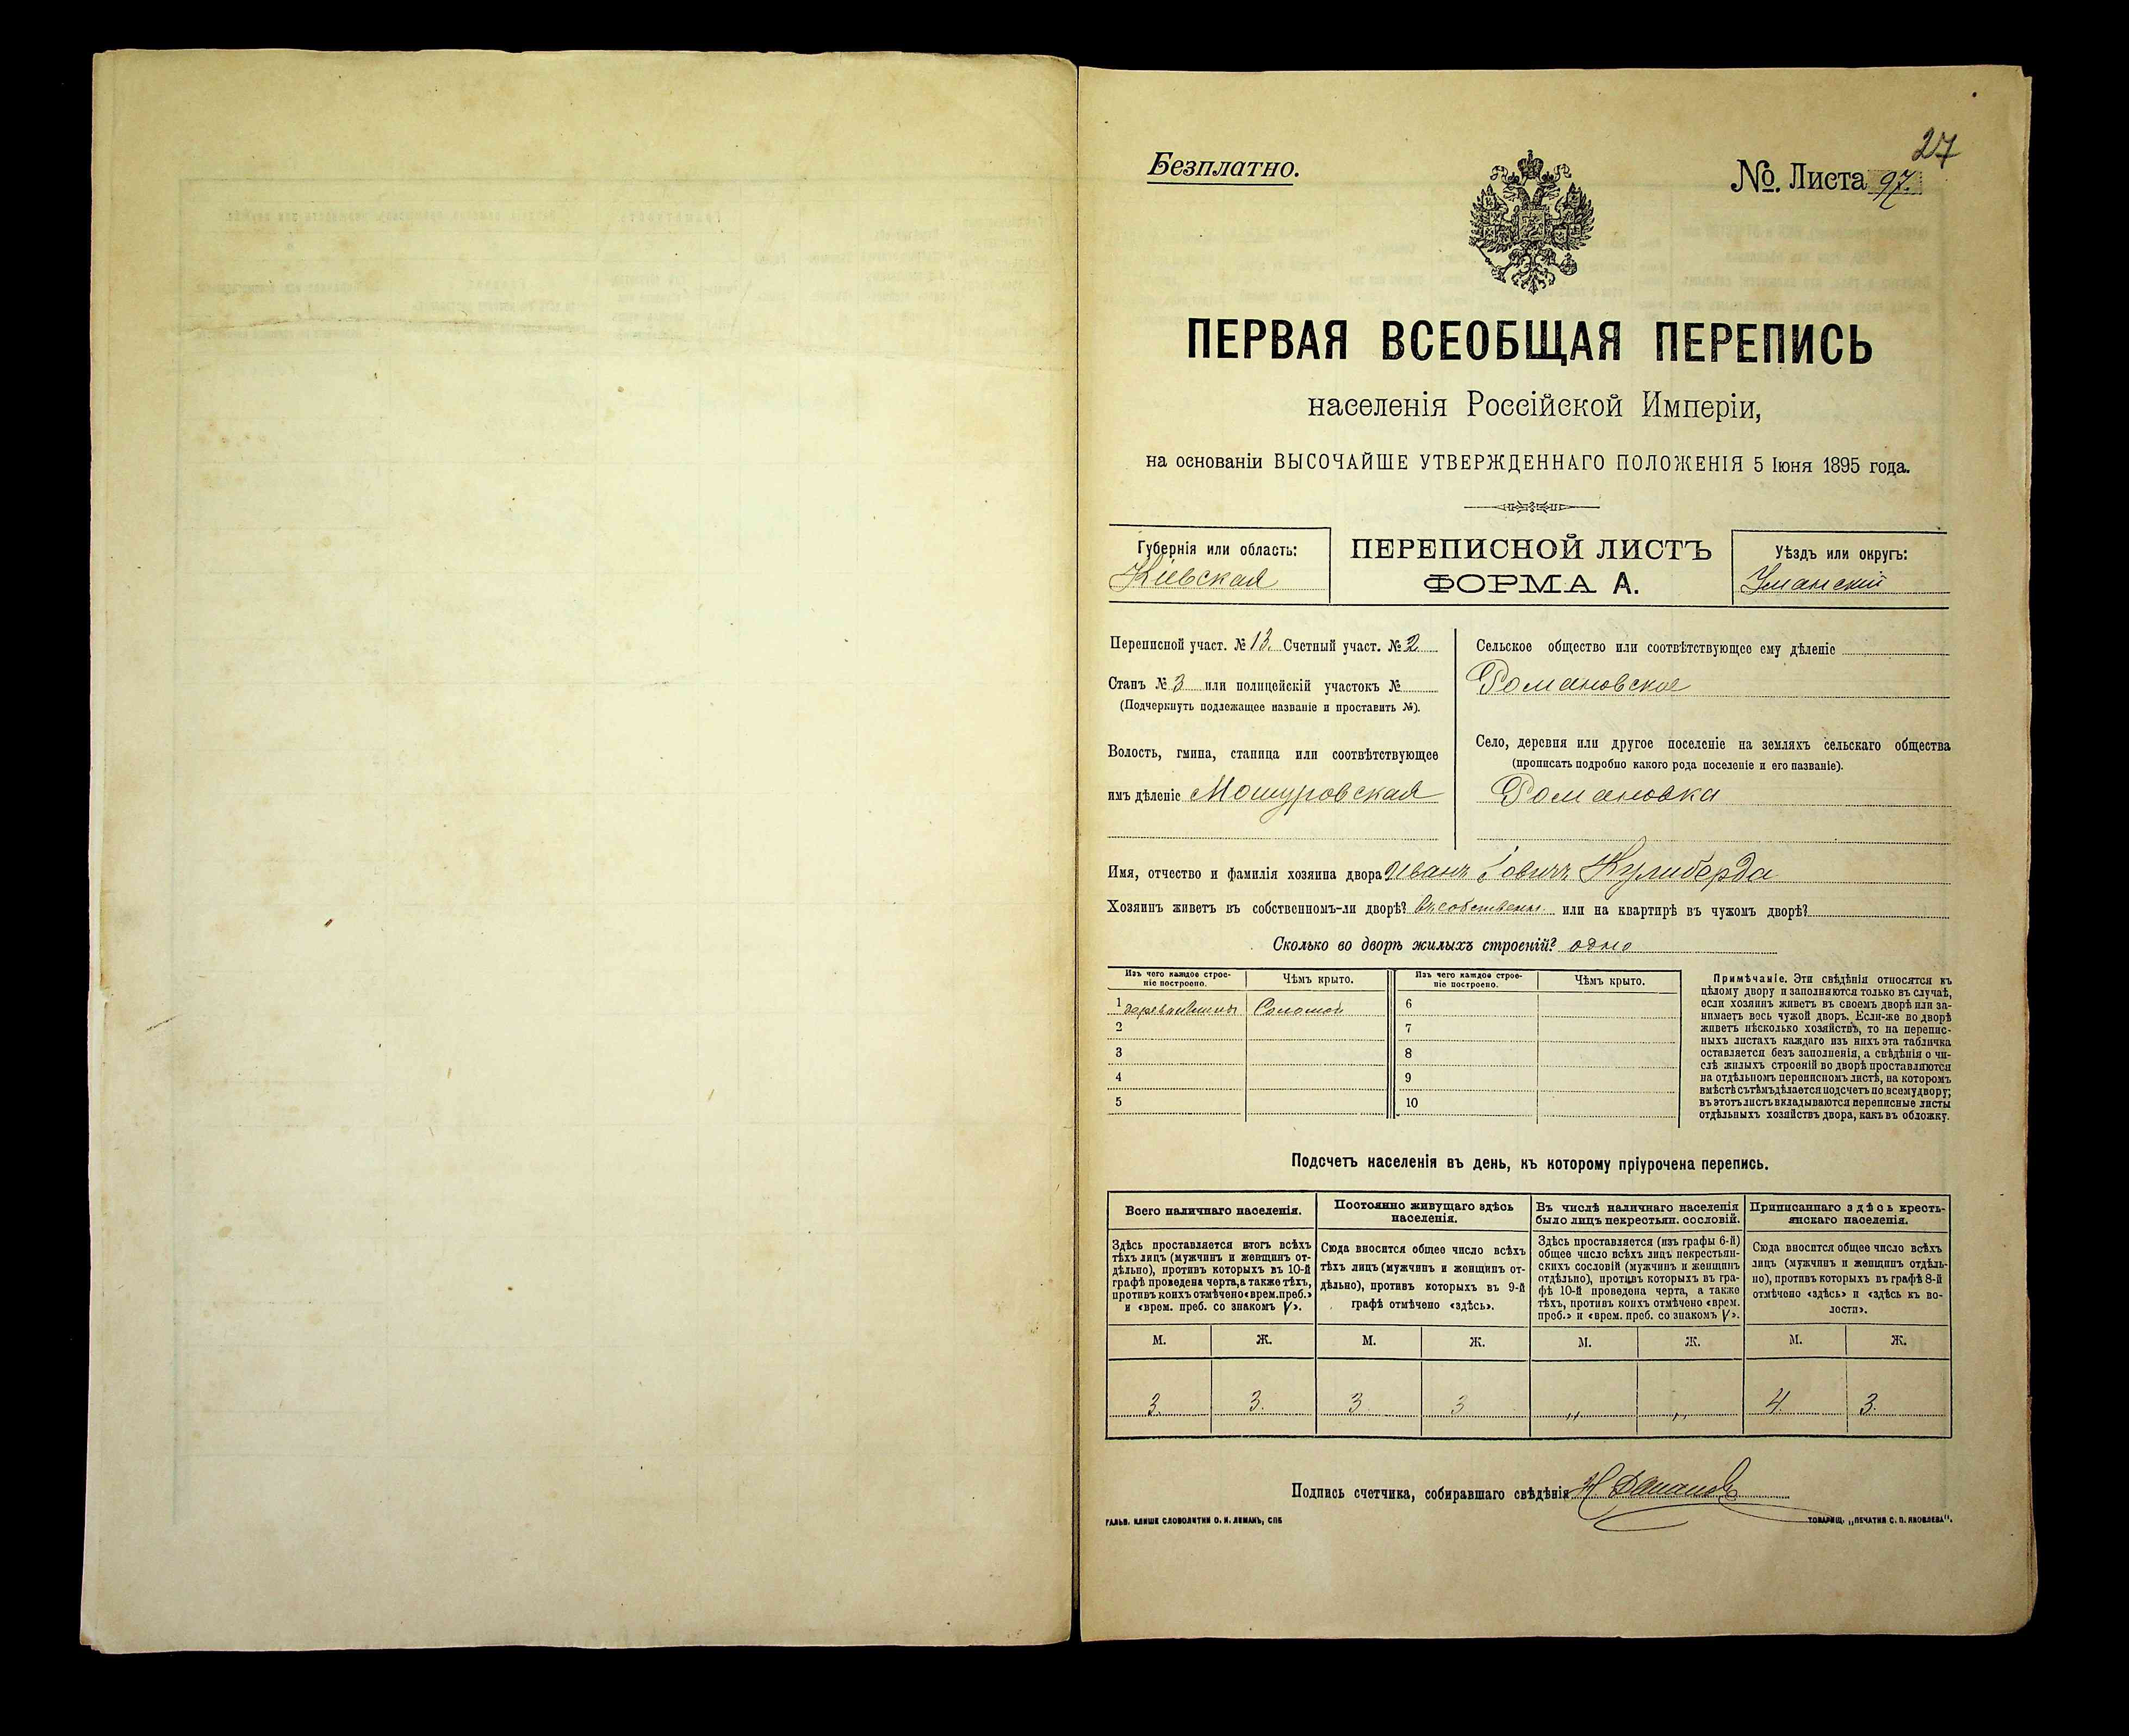 27
Безплатно.
№. Листа 97.
ПЕРВАЯ ВСЕОБЩАЯ ПЕРЕПИСЬ
населенія Россійской Имперіи,
на основаніи ВЫСОЧАЙШЕ УТВЕРЖДЕННАГО ПОЛОЖЕНІЯ 5 Іюня 1895 года.
Губернія или область:
Кіевская
ПЕРЕПИСНОЙ ЛИСТЪ
ФОРМА А.
Уѣздъ или округъ:
Уманскій
Переписной участ. № 13. Счетный участ. № 2
Станъ № 3 или полицейскій участокъ №
(Подчеркнуть подлежащее названіе и проставить №).
Волость, гмина, станица или соотвѣтствующее
имъ дѣленіе Мошуровская
Сельское общество или соотвѣтствующее ему дѣленіе
Романовское
Село, деревня или другое поселеніе на земляхъ сельскаго общества
(прописать подробно какого рода поселеніе и его названіе).
Романовка
Имя, отчество и фамилія хозяина двора Иванъ Кулиберда
Хозяинъ живетъ въ собственномъ-ли дворѣ? въ собствен. или на квартирѣ въ чужомъ дворѣ?
Сколько во дворѣ жилыхъ строеній? одно
Изъ чего каждое строе-
ніе построено.
Чѣмъ крыто.
Изъ чего каждое строе-
ніе построено.
Чѣмъ крыто.
1 Соломой
2
3
4
5
6
7
8
9
10
Примѣчаніе. Эти свѣдѣнія относятся къ
цѣлому двору и заполняются только въ случаѣ,
если хозяинъ живетъ въ своемъ дворѣ или за-
нимаетъ весь чужой дворъ. Если-же во дворѣ
живетъ нѣсколько хозяйствъ, то на перепис-
ныхъ листахъ каждаго изъ нихъ эта табличка
оставляется безъ заполненія, а свѣдѣнія о чи-
слѣ жилыхъ строеній во дворѣ проставляются
на отдѣльномъ переписномъ листѣ, на которомъ
вмѣстѣ съ тѣмъ дѣлается подсчетъ по всему двору;
въ этотъ листъ вкладываются переписные листы
отдѣльныхъ хозяйствъ двора, какъ въ обложку.
Подсчетъ населенія въ день, къ которому пріурочена перепись.
Всего наличнаго населенія.
Здѣсь проставляется итогъ всѣхъ
тѣхъ лицъ (мужчинъ и женщинъ от-
дѣльно), противъ которыхъ въ 10-й
графѣ проведена черта, а также тѣхъ,
противъ коихъ отмѣчено «врем. преб.»
и «врем. преб. со знакомъ V».
Постоянно живущаго здѣсь
населенія.
Сюда вносится общее число всѣхъ
тѣхъ лицъ (мужчинъ и женщинъ от-
дѣльно), противъ которыхъ въ 9-й
графѣ отмѣчено «здѣсь».
Въ числѣ наличнаго населенія
было лицъ некрестьян. сословій.
Здѣсь проставляется (изъ графы 6-й)
общее число всѣхъ лицъ некрестьян-
скихъ сословій (мужчинъ и женщинъ
отдѣльно), противъ которыхъ въ гра-
фѣ 10-й проведена черта, а также
тѣхъ, противъ коихъ отмѣчено «врем.
преб.» и «врем. преб. со знакомъ V».
Приписаннаго здѣсь кресть-
янскаго населенія.
Сюда вносится общее число всѣхъ
лицъ (мужчинъ и женщинъ отдѣль-
но), противъ которыхъ въ графѣ 8-й
отмѣчено «здѣсь» и «здѣсь къ во-
лости».
М. Ж. М. Ж. М. Ж. М. Ж.
3. 3. 3 3 „ „ 4. 3.
Подпись счетчика, собиравшаго свѣдѣнія
ГАЛЬВ. КЛИШЕ СЛОВОЛИТНИ О. И. ЛЕМАНЪ, СПБ
ТОВАРИЩ. „ПЕЧАТНЯ С. П. ЯКОВЛЕВА".